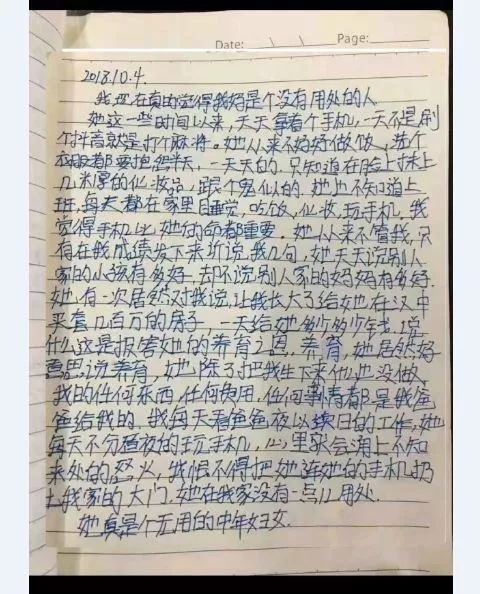 Date: \ \ Page:
2018.10.4.
我现在真的觉得我妈是个没有用处的人
她这一些时间以来，天天拿着个手机，一天不是刷
个抖音就是打个麻将。她从来不好好做饭，洗个
衣服都要抱怨半天，一天天的，只知道在脸上抹上
几米厚的化妆品，跟个鬼似的，她也不知道上
班，每天都在家里目睡觉，吃饭，化妆，玩手机，我
觉得手机比她的命都重要。她从来不管我，只
有在我成绩发下来近说我几句，她天天说别人
家的小孩有多好，却不说别人家的妈妈有多好，
她有一次居然对我说，让我长大了给她在汉中
买套几百万的房子，一天给她多少多少年钱，说
什么这是报答她的养育之恩，养育，她居然好
意思说养育，她除了把我生下来什么也没做，
我的任何东西，任何费用，任何 都是我爸
爸给我的，我每天看爸爸夜以续日的工作，她
每天不分昼夜的玩手机，心里就会涌上不知
来处的怒火，我恨不得把她连她的手机扔
出我家的大门，她在我家没有一点儿用处.
她真是个无用的中年妇女.